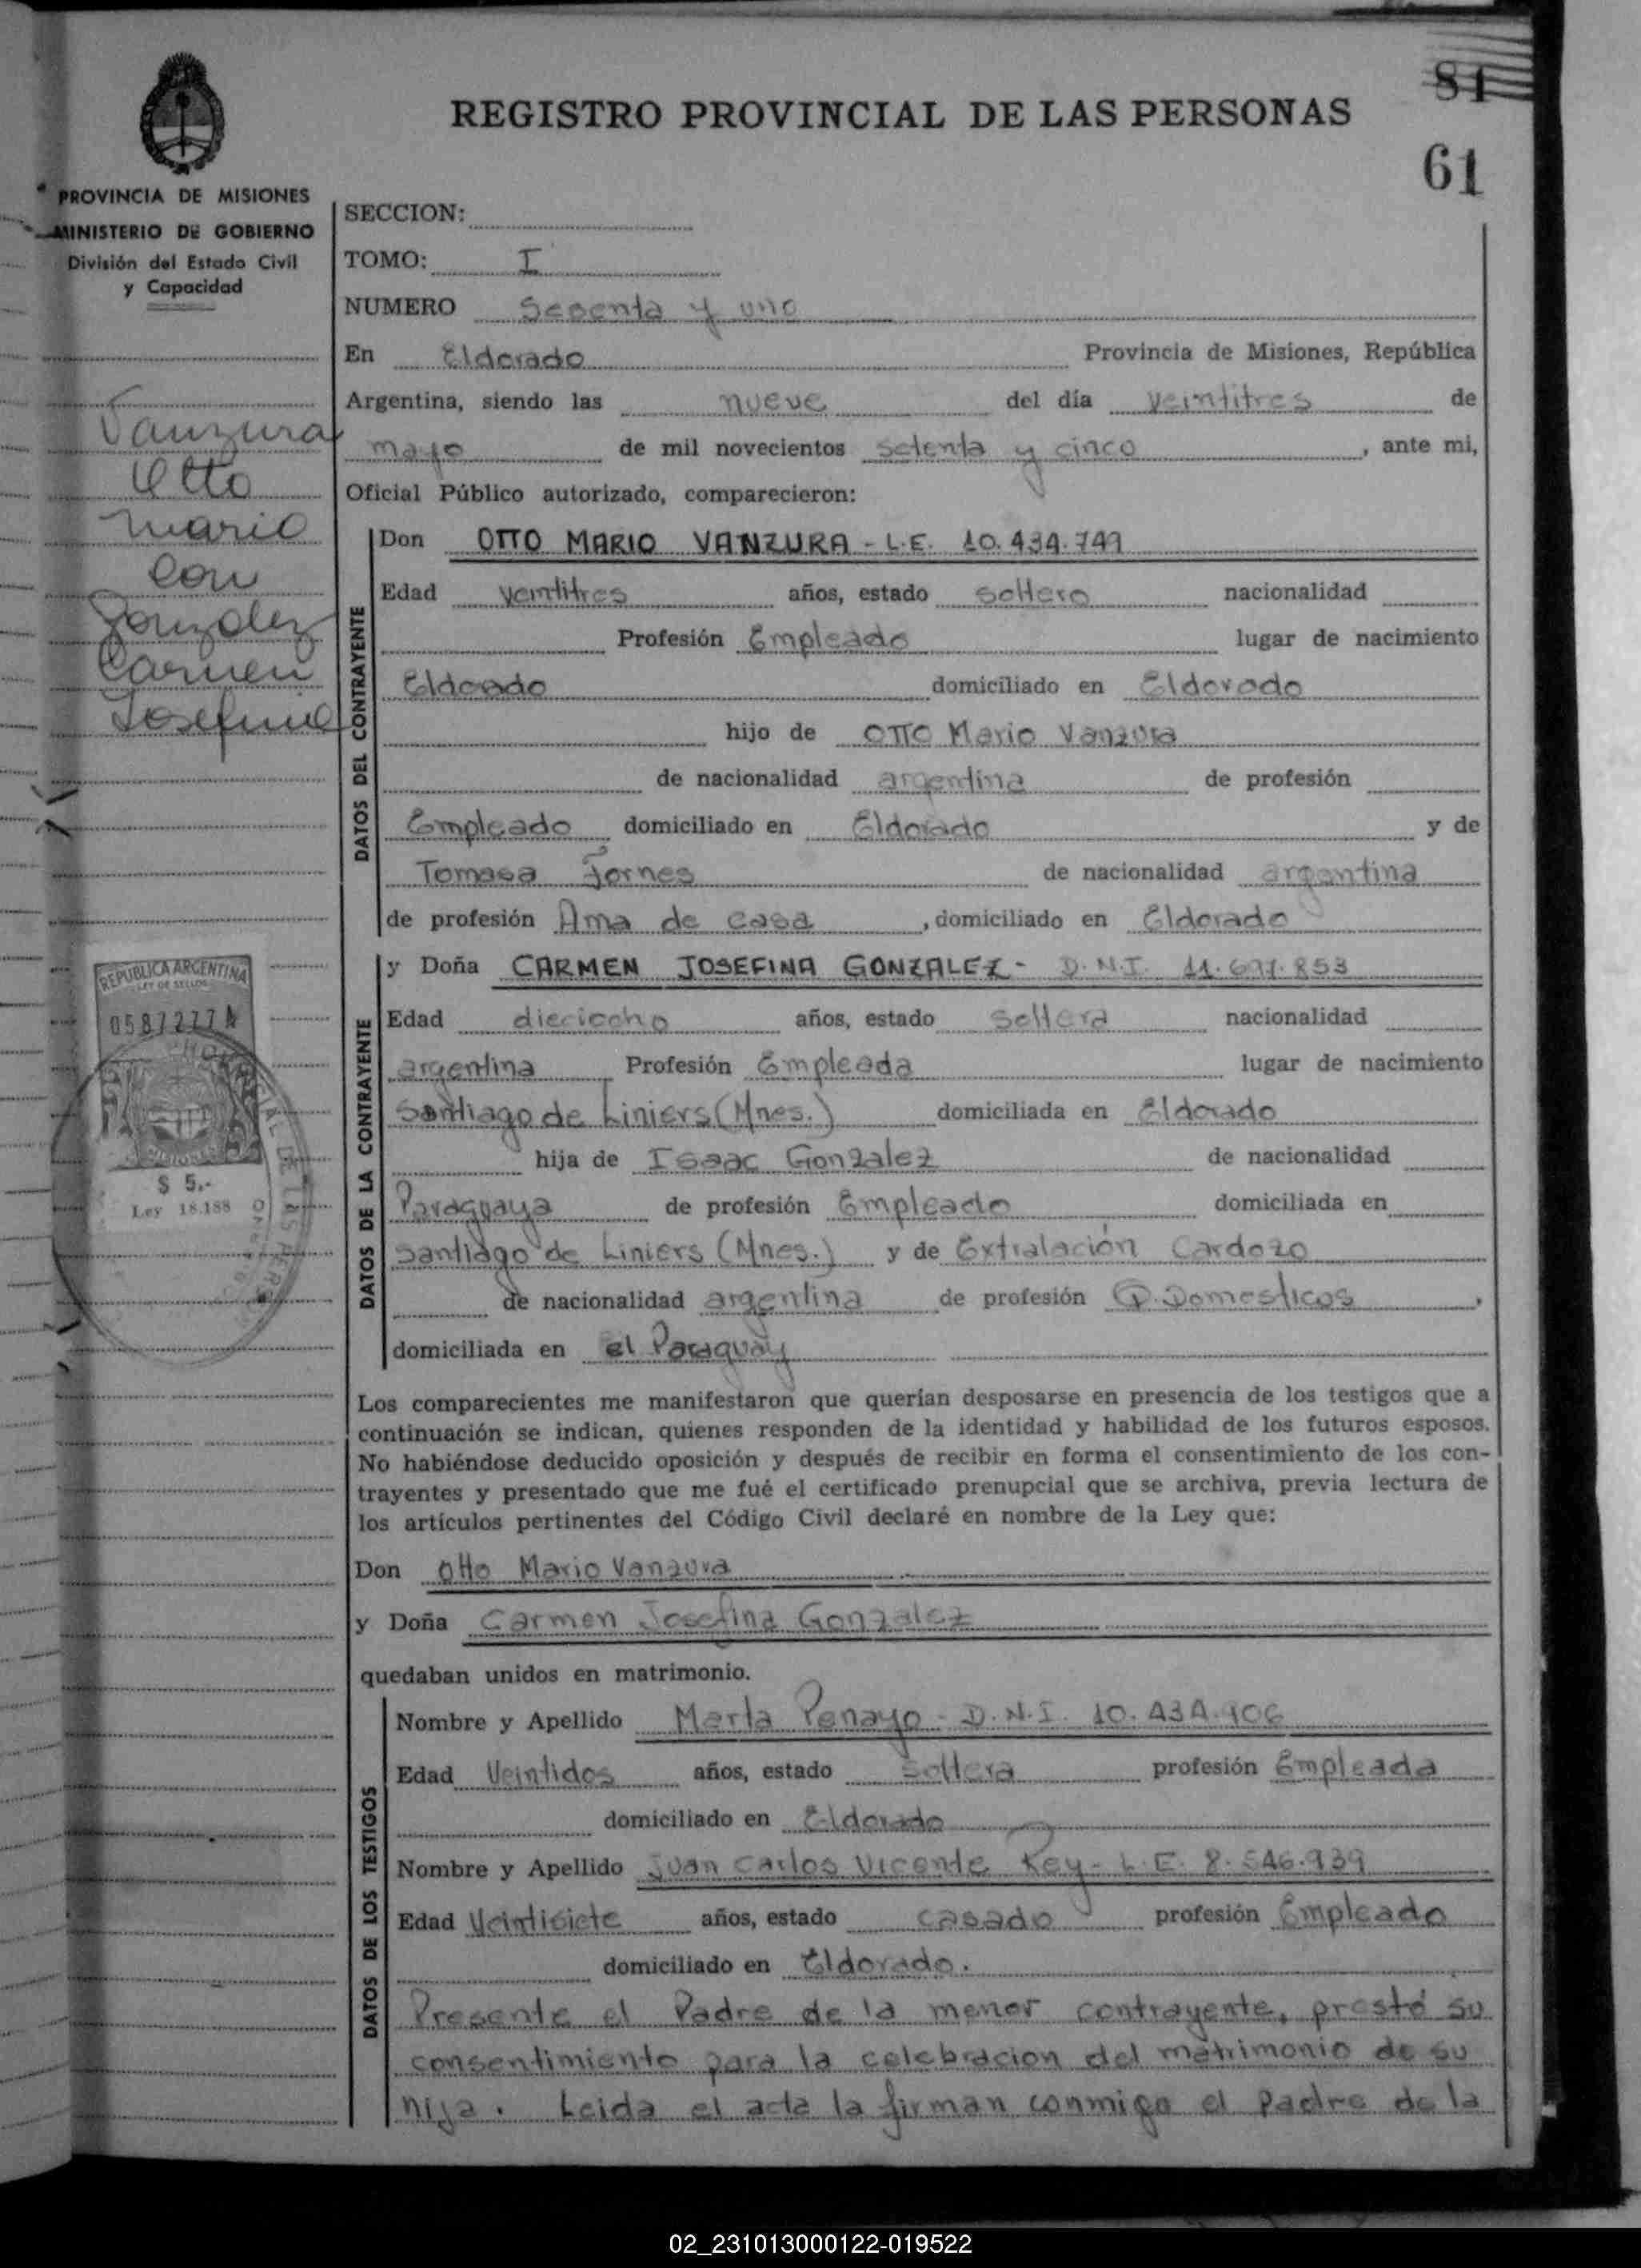 81
REGISTRO PROVINCIAL DE LAS PERSONAS
61
PROVINCIA DE MISIONES
MINISTERIO DE GOBIERNO
División del Estado Civil
y Capacidad
Vanzura
Otto
Mario
con
Gonzalez
Carmen
Josefina
REPUBLICA ARGENTINA
LEY DE SELLOS
MISIONES
$ 5.-
Ley 18.188
SECCION:
TOMO: I
NUMERO Sesenta y uno
En Eldorado Provincia de Misiones, República
Argentina, siendo las nueve del día veintitres de
mayo de mil novecientos setenta y cinco, ante mi,
Oficial Público autorizado, comparecieron:
DATOS DEL CONTRAYENTE
Don OTTO MARIO VANZURA - L.E. 10.434.749
Edad veintitres años, estado soltero nacionalidad
Profesión Empleado lugar de nacimiento
Eldorado domiciliado en Eldorado
hijo de Otto Mario Vanzura
de nacionalidad argentina de profesión
Empleado domiciliado en Eldorado y de
Tomasa Fornes de nacionalidad argentina
de profesión Ama de casa, domiciliado en Eldorado
DATOS DE LA CONTRAYENTE
y Doña CARMEN JOSEFINA GONZALEZ - D.N.I. 11.691.853
Edad dieciocho años, estado soltera nacionalidad
argentina Profesión Empleada lugar de nacimiento
Santiago de Liniers (Mnes.) domiciliada en Eldorado
hija de Isaac Gonzalez de nacionalidad
Paraguaya de profesión Empleado domiciliada en
Santiago de Liniers (Mnes.) y de Extralación Cardozo
de nacionalidad argentina de profesión Q. Domesticos,
domiciliada en el Paraguay
Los comparecientes me manifestaron que querían desposarse en presencia de los testigos que a
continuación se indican, quienes responden de la identidad y habilidad de los futuros esposos.
No habiéndose deducido oposición y después de recibir en forma el consentimiento de los con-
trayentes y presentado que me fué el certificado prenupcial que se archiva, previa lectura de
los artículos pertinentes del Código Civil declaré en nombre de la Ley que:
Don Otto Mario Vanzura
y Doña Carmen Josefina Gonzalez
quedaban unidos en matrimonio.
DATOS DE LOS TESTIGOS
Nombre y Apellido Marta Penayo - D.N.I. 10.434.906
Edad Veintidos años, estado soltera profesión Empleada
domiciliado en Eldorado
Nombre y Apellido Juan Carlos Vicente Rey - L.E. 8.546.939
Edad Veintisiete años, estado casado profesión Empleado
domiciliado en Eldorado.
Presente el Padre de la menor contrayente, prestó su
consentimiento para la celebracion del matrimonio de su
hija. Leida el acta la firman conmigo el padre de la
02_231013000122-019522